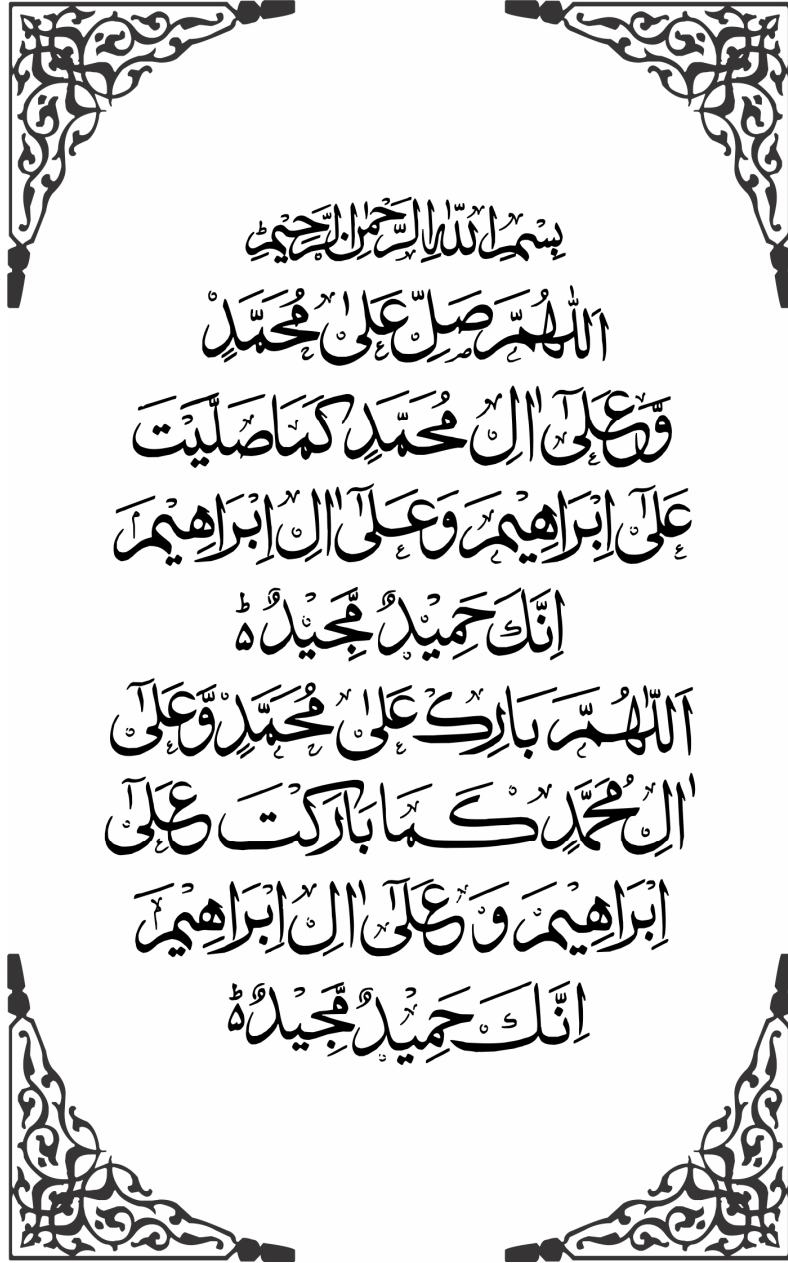 بِسْمِ اللّٰهِ الرَّحْمٰنِ الرَّحِيْمِ ؕ
اَللّٰهُمَّ صَلِّ عَلٰى مُحَمَّدٍ
وَّعَلٰٓى اٰلِ مُحَمَّدٍ كَمَا صَلَّيْتَ
عَلٰٓى اِبْرَاهِيْمَ وَعَلٰٓى اٰلِ اِبْرَاهِيْمَ
اِنَّكَ حَمِيْدٌ مَّجِيْدٌ ۵ؕ
اَللّٰهُمَّ بَارِكْ عَلٰى مُحَمَّدٍ وَّعَلٰٓى
اٰلِ مُحَمَّدٍ كَمَا بَارَكْتَ عَلٰٓى
اِبْرَاهِيْمَ وَعَلٰٓى اٰلِ اِبْرَاهِيْمَ
اِنَّكَ حَمِيْدٌ مَّجِيْدٌ ۵ؕ